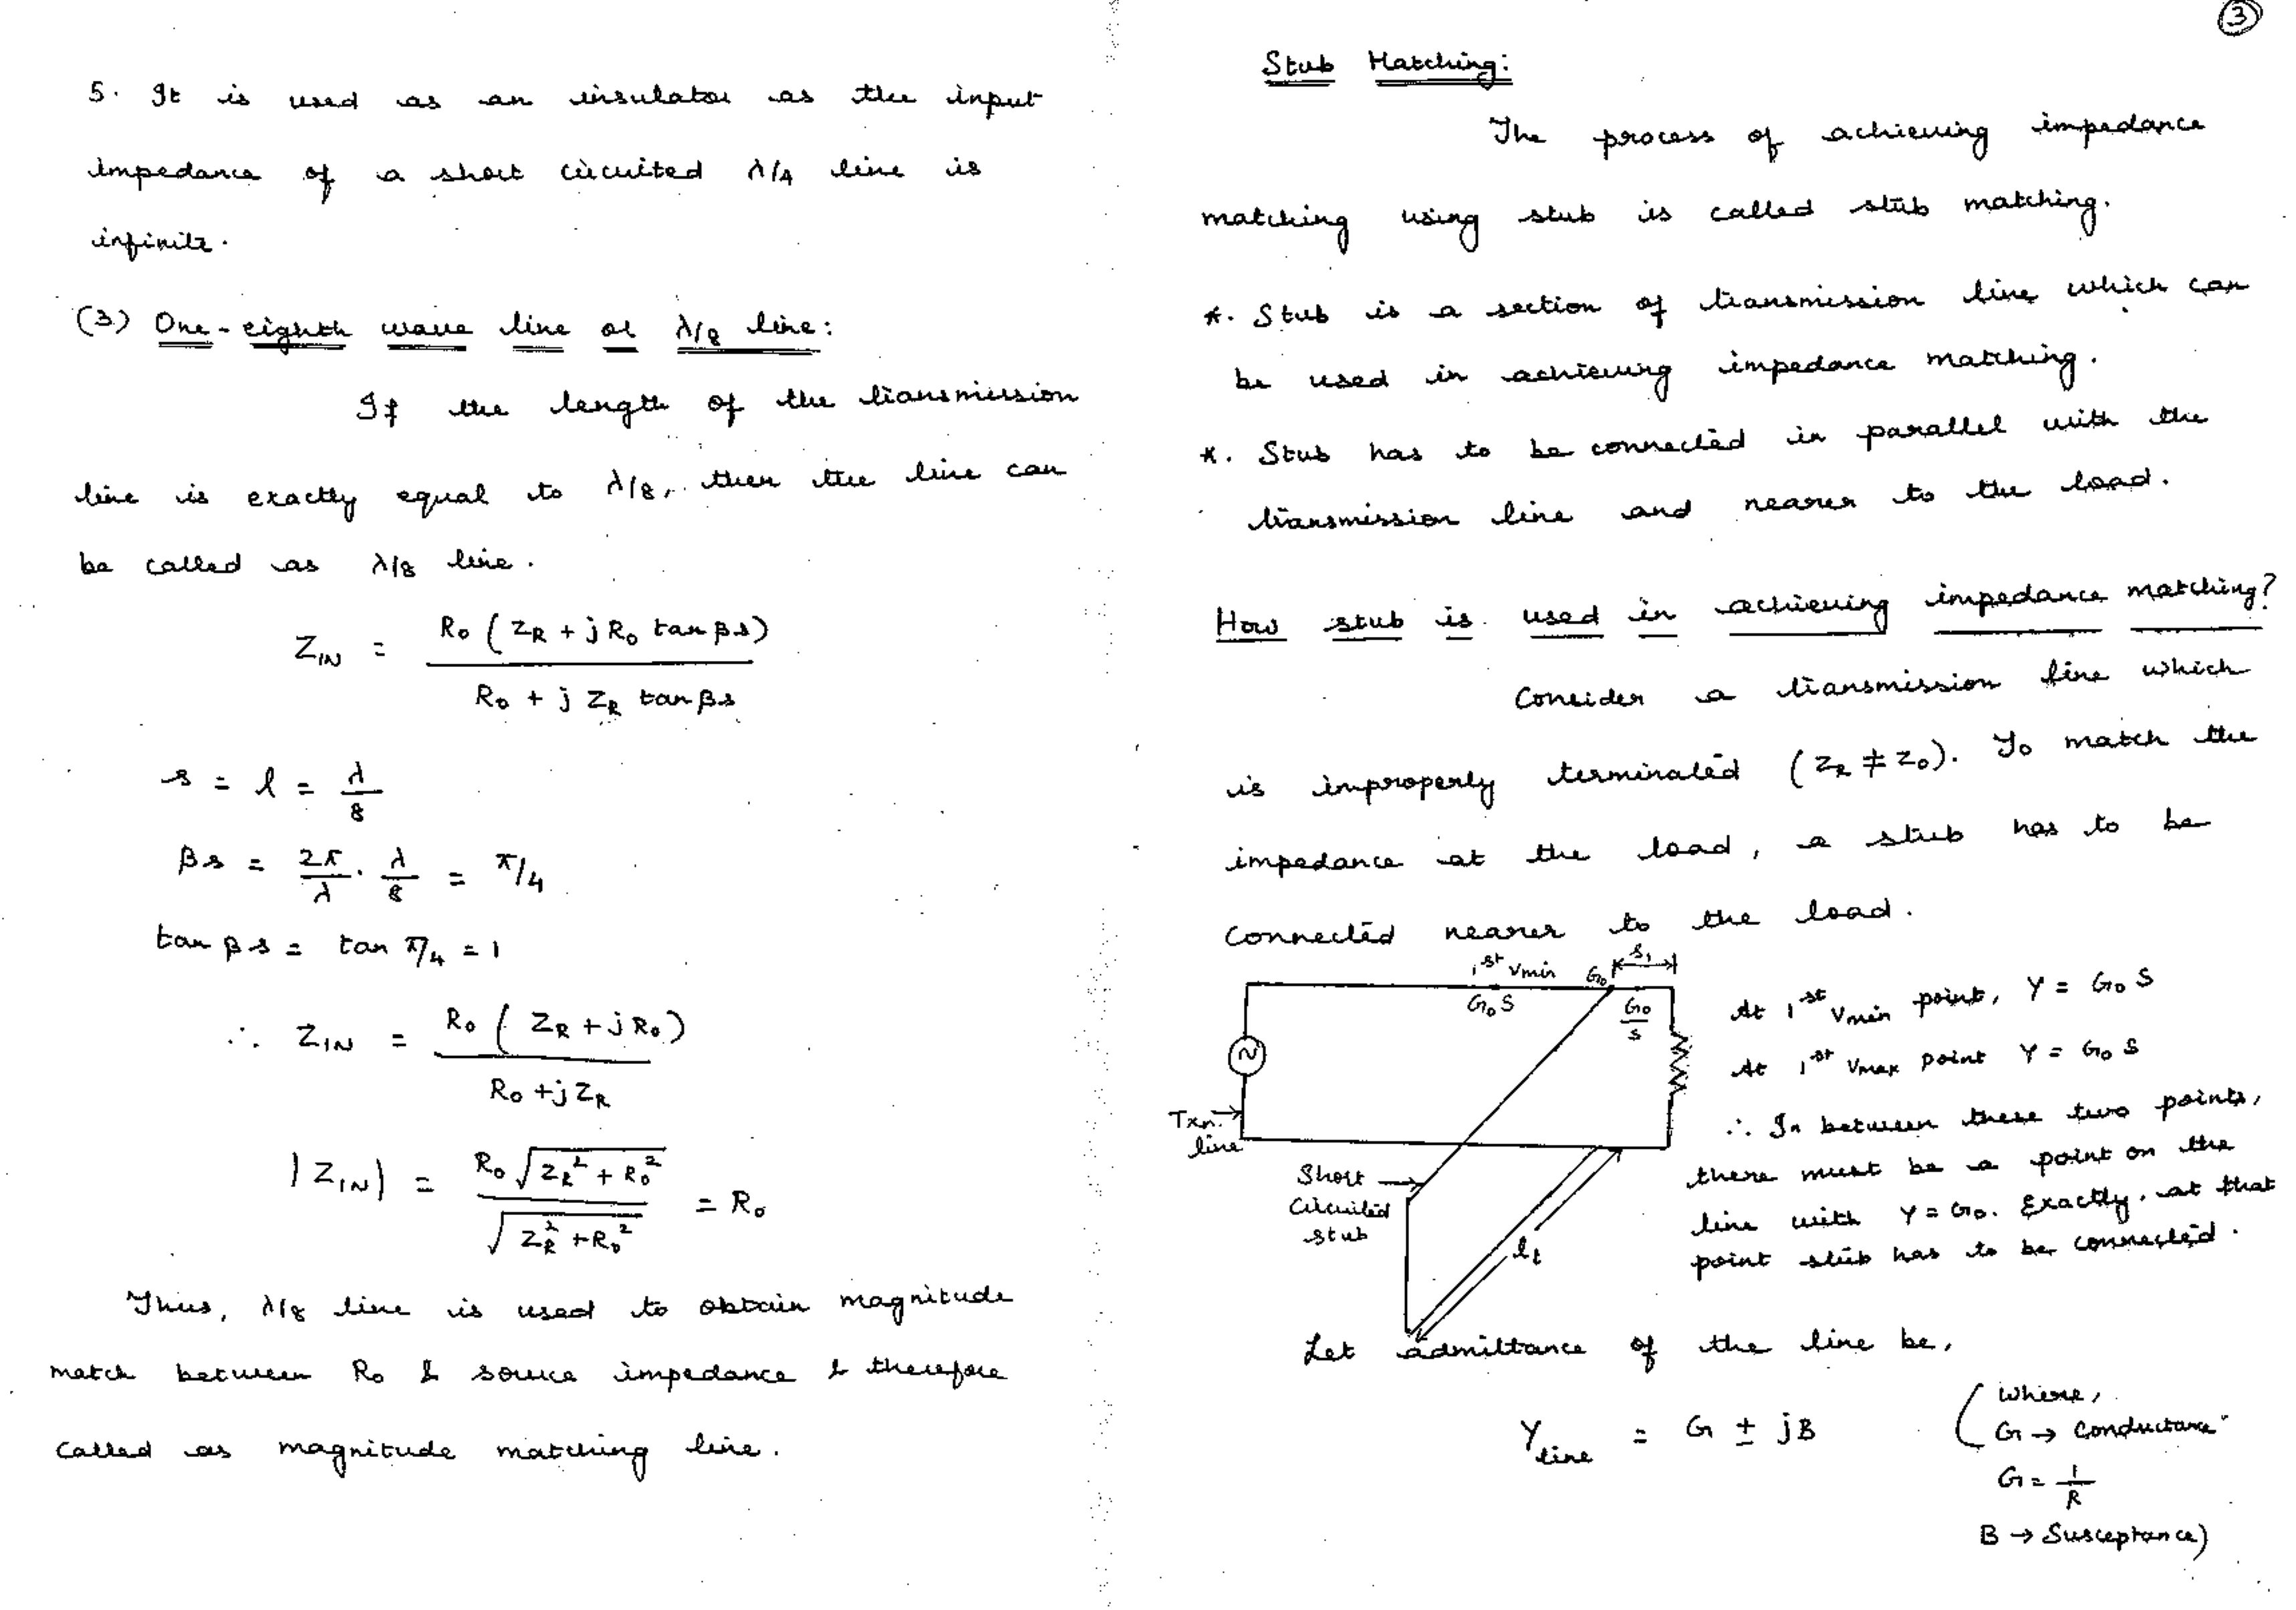 5. It is used as an insulator as the input
impedance of a short circuited λ/4 line is
infinite.
(3) One-eighth wave line or λ/8 line:
If the length of the transmission
line is exactly equal to λ/8, then the line can
be called as λ/8 line.
Z_IN = R₀ (Z_R + j R₀ tan βs) / R₀ + j Z_R tan βs
s = l = λ/8
βs = 2π/λ . λ/8 = π/4
tan βs = tan π/4 = 1
∴ Z_IN = R₀ (Z_R + j R₀) / R₀ + j Z_R
|Z_IN| = R₀ √(Z_R² + R₀²) / √(Z_R² + R₀²) = R₀
Thus, λ/8 line is used to obtain magnitude
match between R₀ & source impedance & therefore
called as magnitude matching line.
③
Stub Matching:
The process of achieving impedance
matching using stub is called stub matching.
*. Stub is a section of transmission line which can
be used in achieving impedance matching.
*. Stub has to be connected in parallel with the
transmission line and nearer to the load.
How stub is used in achieving impedance matching?
Consider a transmission line which
is improperly terminated (Z_R ≠ Z₀). To match the
impedance at the load, a stub has to be
connected nearer to the load.
1st Vmin G₀ s₁
G₀ S G₀/s
Txn. line
Short circuited stub
l_t
At 1st Vmin point, Y = G₀ S
At 1st Vmax point Y = G₀ S
∴ In between these two points,
there must be a point on the
line with Y = G₀. Exactly, at that
point stub has to be connected.
Let admittance of the line be,
Y_line = G ± jB
(where,
G → Conductance
G = 1/R
B → Susceptance)